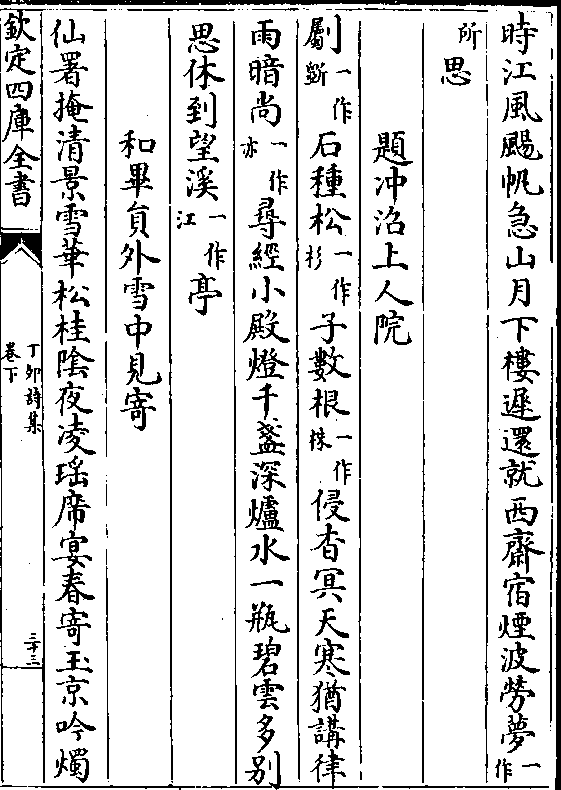 時江風颺帆急山月下樓遲還就西齋宿煙波勞夢一作
所思
題冲沼上人院
劚一作斲石種松一作杉子數根一作株侵杳冥天寒猶講律
雨暗尚一作亦尋經小殿燈千盞深爐水一瓶碧雲多别
思休到望溪一作江亭
和畢貟外雪中見寄
仙署掩清景雪華松桂陰夜凌瑶席宴春寄玉京吟燭
欽定四庫全書
丁卯詩集
卷下
三十三